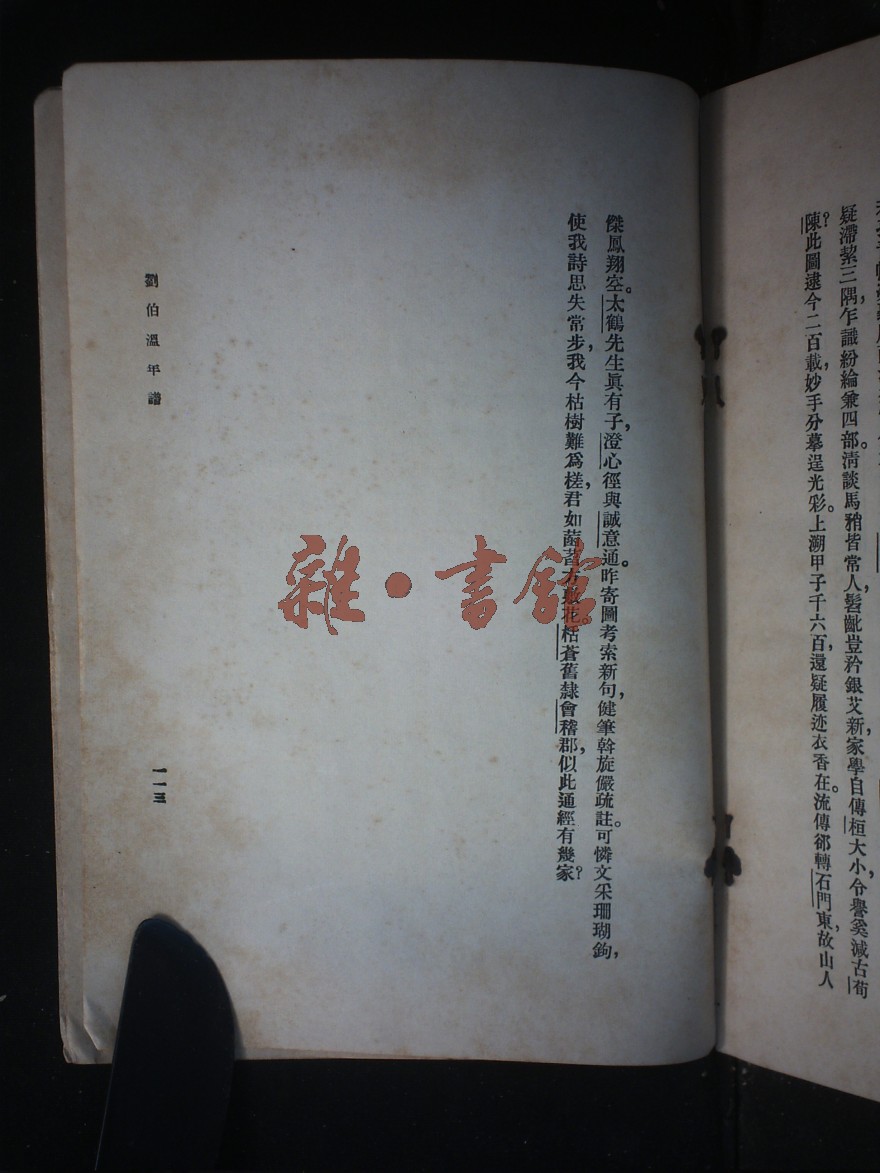 疑滯絜三隅，乍識紛綸兼四部。清談馬矟皆常人，髫齔豈矜銀艾新，家學自傳桓大小，令譽奚減古荀
陳？此圖逮今二百載，妙手分摹逞光彩。上溯甲子千六百，還疑履迹衣香在。流傳郤轉石門東，故山人
傑鳳翔空。太鶴先生眞有子，澄心徑與誠意通。昨寄圖考索新句，健筆斡旋儼疏註。可憐文采珊瑚鉤，
使我詩思失常步，我今枯樹難爲槎，君如菡萏方敷花。栝蒼舊隸會稽郡，似此通經有幾家？
劉伯溫年譜
一一三
雜·書館